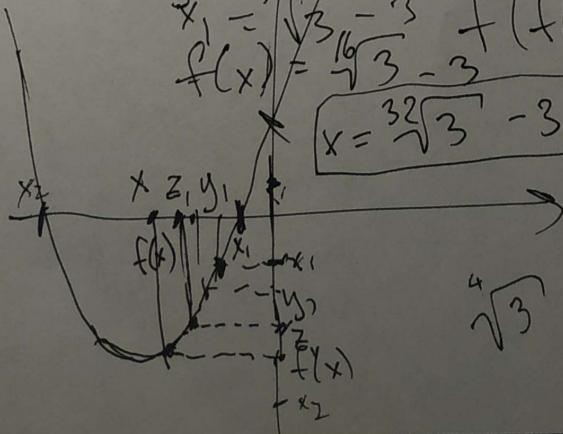 x₁ = √3 - 3
f(x) = ¹⁶√3 - 3
f(f
x = ³²√3 - 3
x₂ x z₁ y₁
f(x) x₁
x₁
y₁
z
f(x)
x₂
⁴√3